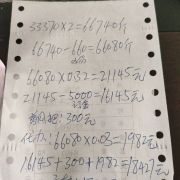 33370×2=66740斤
66740-660=66080斤
66080×0.32=21145元
21145-5000=16145元
订金
300元
66080×0.03=1982元
16145+300+1982=18427元